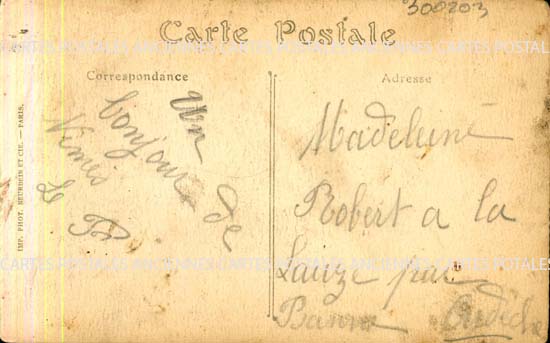 300203
Carte Postale
Correspondance
Adresse
Un
bonjour de
Nimes
Madeleine
Robert a la
Lauze par
Banne Ardèche
IMP. PHOT. NEURDEIN ET CIE. — PARIS.
CARTES POSTALES ANCIENNES CARTES POSTALES
CARTES POSTALES ANCIENNES CARTES POSTALES